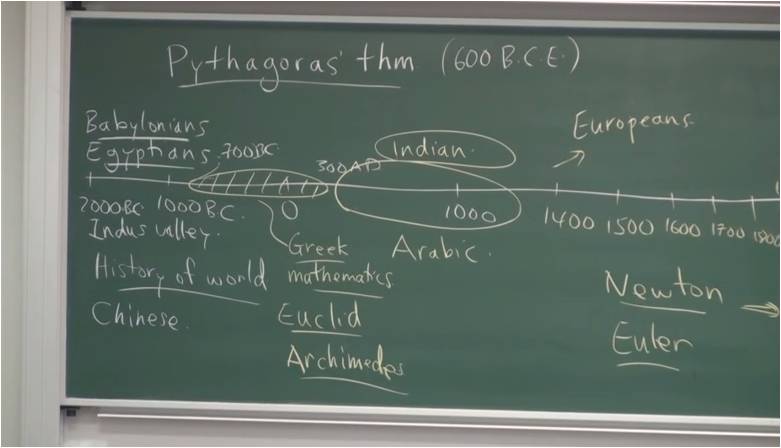 Pythagoras' thm (600 B.C.E.)
Babylonians
Egyptians. 700BC.
300AD
Indian.
Europeans
2000BC. 1000BC. 0 1000 1400 1500 1600 1700 1800
Indus valley.
Greek
Arabic.
History of world mathematics
Newton
Chinese.
Euclid
Euler
Archimedes